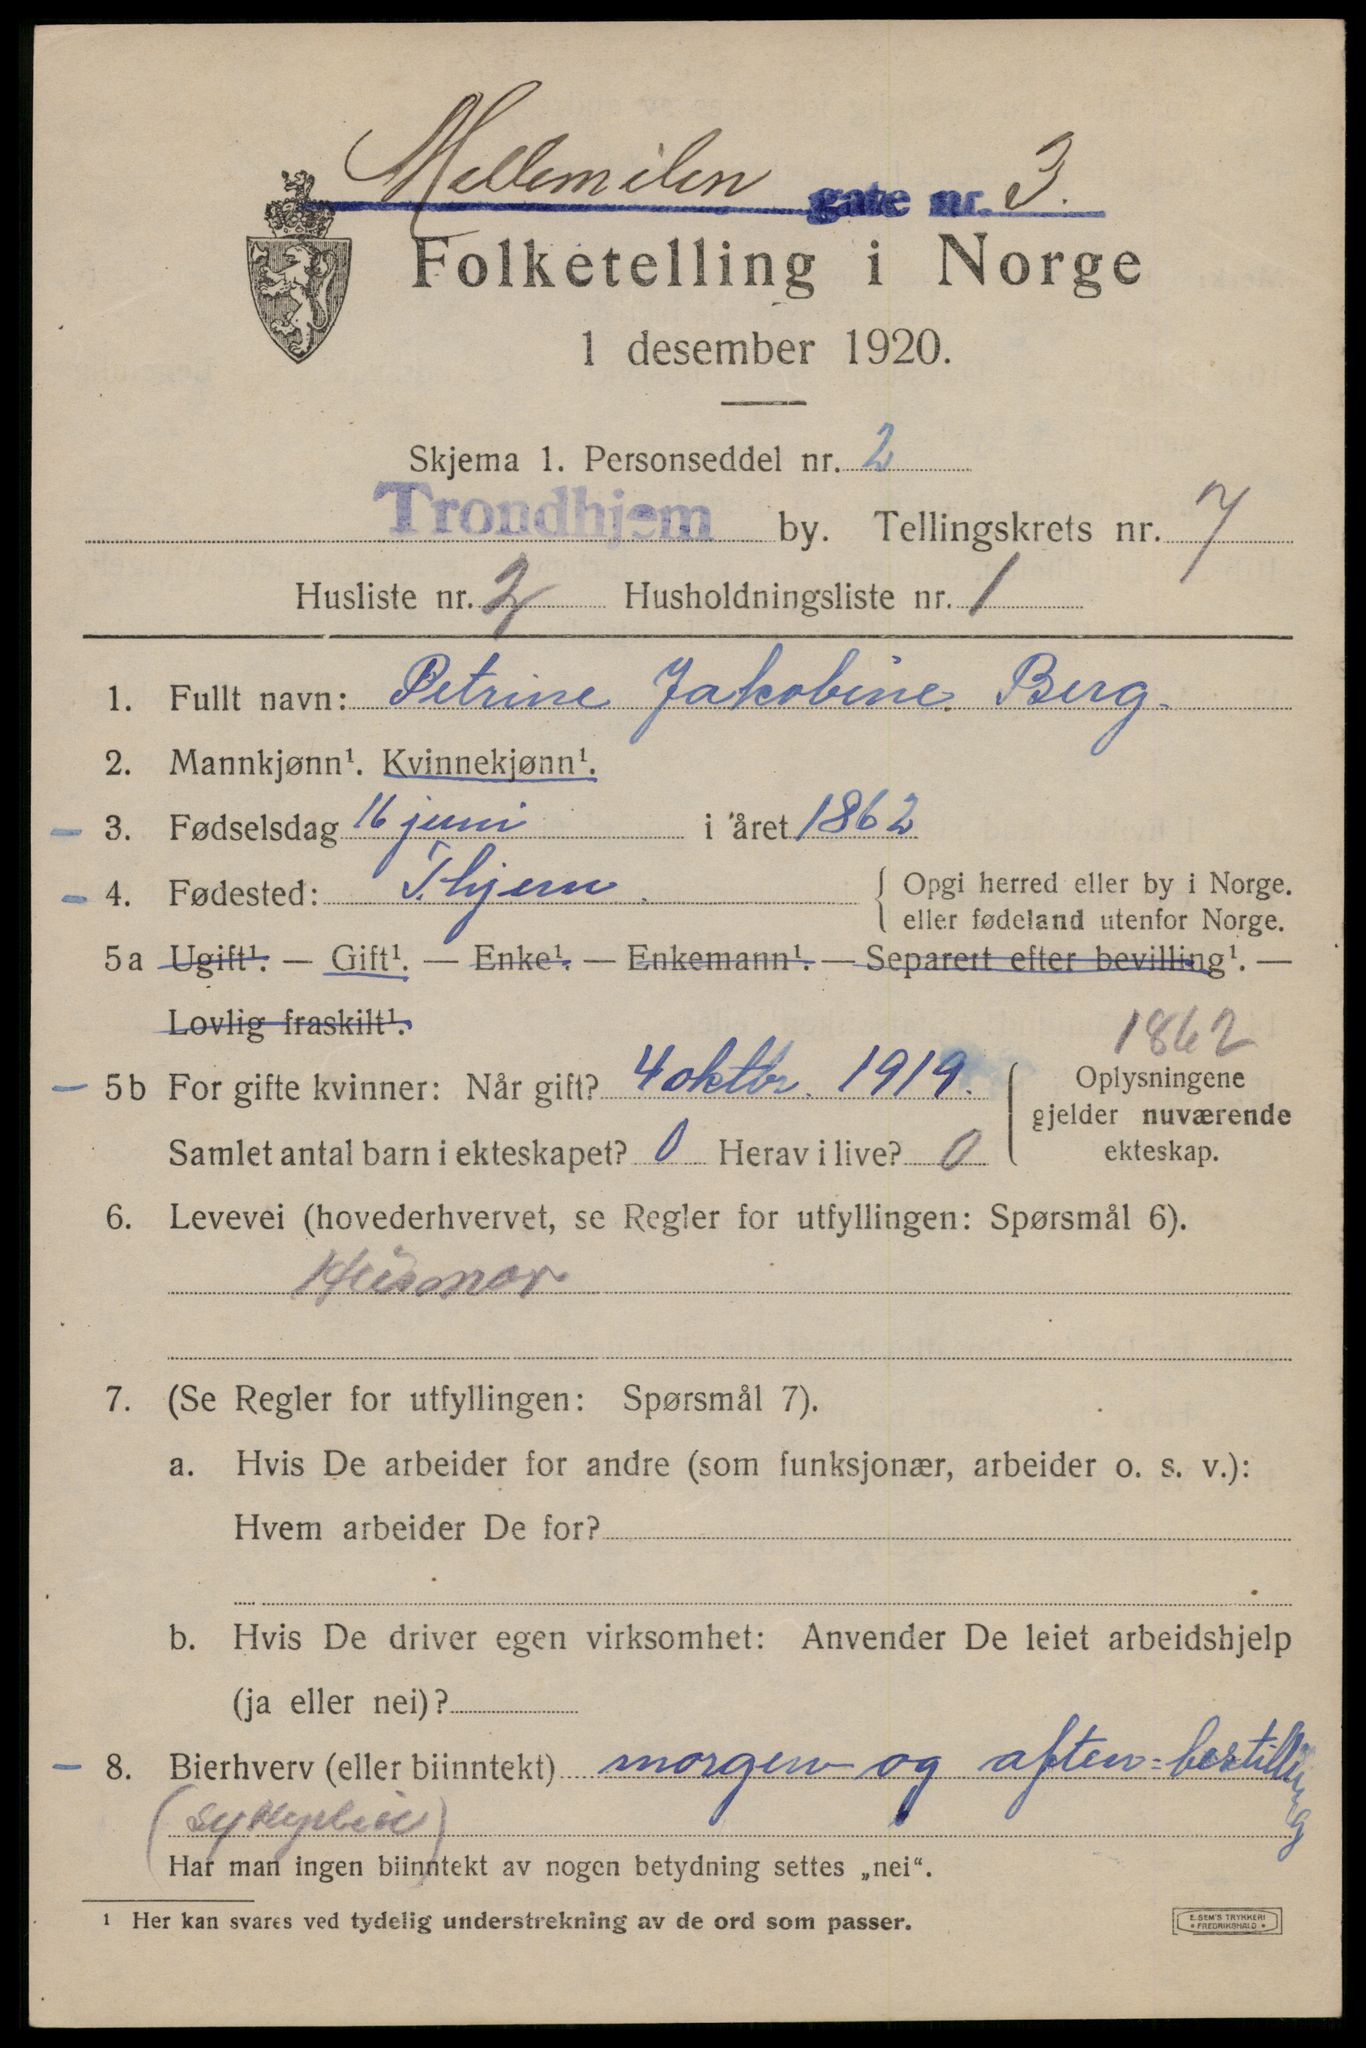 Mellemilen gate nr. 3.
Folketelling i Norge
1 desember 1920.
Skjema 1. Personseddel nr. 2
Trondhjem by. Tellingskrets nr. 7
Husliste nr. 2 Husholdningsliste nr. 1
1. Fullt navn: Petrine Jakobine Berg.
2. Mannkjønn¹. Kvinnekjønn¹.
3. Fødselsdag 16 juni i året 1862
4. Fødested: T.hjem. { Opgi herred eller by i Norge.
eller fødeland utenfor Norge.
5a Ugift¹. — Gift¹. — Enke¹. — Enkemann¹. — Separert efter bevilling¹. —
Lovlig fraskilt¹.
1862
5b For gifte kvinner: Når gift? 4 oktbr. 1919.
Samlet antal barn i ekteskapet? 0 Herav i live? 0
Oplysningene
gjelder nuværende
ekteskap.
6. Levevei (hovederhvervet, se Regler for utfyllingen: Spørsmål 6).
Husmor
7. (Se Regler for utfyllingen: Spørsmål 7).
a. Hvis De arbeider for andre (som funksjonær, arbeider o. s. v.):
Hvem arbeider De for?
b. Hvis De driver egen virksomhet: Anvender De leiet arbeidshjelp
(ja eller nei)?
8. Bierhverv (eller biinntekt) morgen og aften=bestilling
Har man ingen biinntekt av nogen betydning settes „nei“.
¹ Her kan svares ved tydelig understrekning av de ord som passer.
E. SEM'S TRYKKERI
FREDRIKSHALD